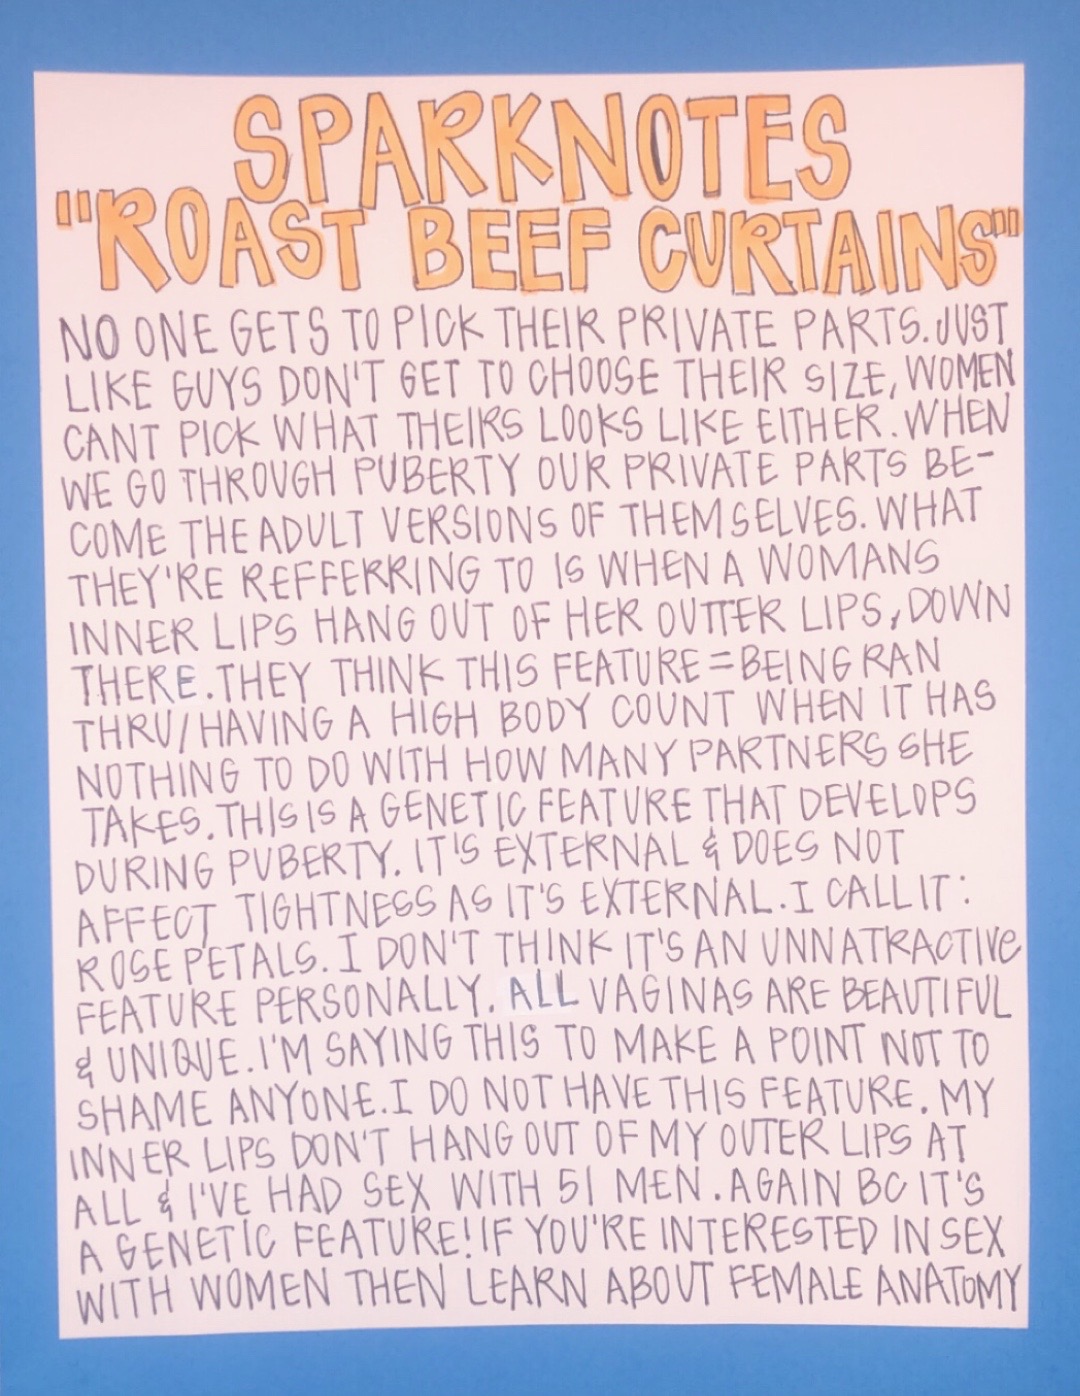 SPARKNOTES
"ROAST BEEF CURTAINS"
NO ONE GETS TO PICK THEIR PRIVATE PARTS. JUST
LIKE GUYS DON'T GET TO CHOOSE THEIR SIZE, WOMEN
CANT PICK WHAT THEIRS LOOKS LIKE EITHER. WHEN
WE GO THROUGH PUBERTY OUR PRIVATE PARTS BE-
COME THE ADULT VERSIONS OF THEMSELVES. WHAT
THEY'RE REFFERRING TO IS WHEN A WOMANS
INNER LIPS HANG OUT OF HER OUTTER LIPS, DOWN
THERE. THEY THINK THIS FEATURE = BEING RAN
THRU/HAVING A HIGH BODY COUNT WHEN IT HAS
NOTHING TO DO WITH HOW MANY PARTNERS SHE
TAKES. THIS IS A GENETIC FEATURE THAT DEVELOPS
DURING PUBERTY. IT'S EXTERNAL & DOES NOT
AFFECT TIGHTNESS AS IT'S EXTERNAL. I CALL IT:
ROSE PETALS. I DON'T THINK IT'S AN UNNATRACTIVE
FEATURE PERSONALLY. ALL VAGINAS ARE BEAUTIFUL
& UNIQUE. I'M SAYING THIS TO MAKE A POINT NOT TO
SHAME ANYONE. I DO NOT HAVE THIS FEATURE. MY
INNER LIPS DON'T HANG OUT OF MY OUTER LIPS AT
ALL & I'VE HAD SEX WITH 51 MEN. AGAIN BC IT'S
A GENETIC FEATURE! IF YOU'RE INTERESTED IN SEX
WITH WOMEN THEN LEARN ABOUT FEMALE ANATOMY